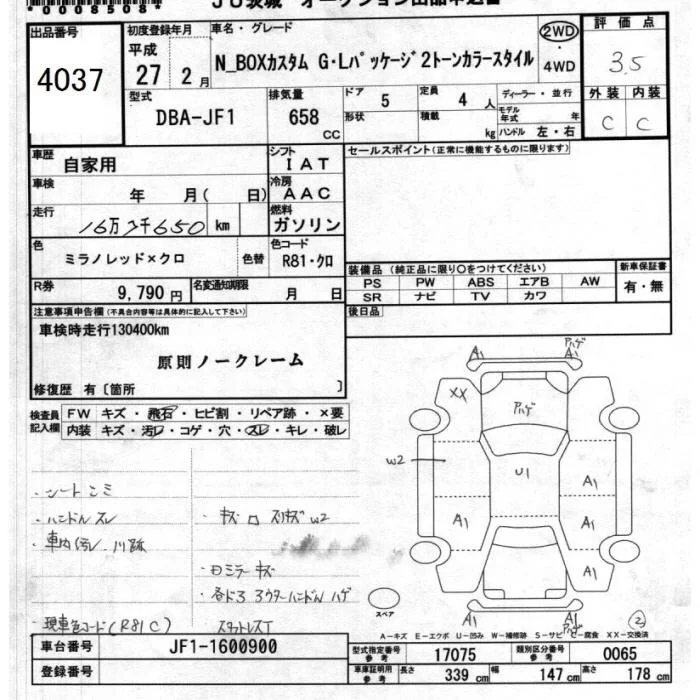 *00085084*
JU茨城 オークション出品申込書
出品番号
4037
初度登録年月
平成
27 2 月
車名・グレード
N_BOXカスタム G・Lパッケージ2トーンカラースタイル
2WD
・
4WD
評価点
3.5
外装 内装
C C
型式
DBA-JF1
排気量
658
CC
ドア
5
定員
4 人
ディーラー・並行
形状
積載
kg
モデル年式 年
ハンドル 左・右
車歴
自家用
シフト
IAT
車検
年 月( 日)
冷房
AAC
走行
km
燃料
ガソリン
色
ミラノレッド×クロ
色替
色コード
R81・クロ
R券
9,790 円
名変通知期限
月 日
セールスポイント(正常に機能するものに限ります)
装備品 (純正品に限り〇をつけてください)
PS PW ABS エアB AW
SR ナビ TV カワ
新車保証書
有・無
後日品
注意事項申告欄(不具合内容等は具体的に記入して下さい)
車検時走行130400km
原則ノークレーム
修復歴 有〔箇所 〕
検査員記入欄
FW キズ・飛石・ヒビ割・リペア跡・×要
内装 キズ・汚レ・コゲ・穴・スレ・キレ・破レ
・シートシミ
・ハンドルスレ
・車内汚レ
・キズ
W2
・ミラーキズ
・各ドアアウターハンドルハゲ
・現車色コード(R81C)
スタットレスT
A1
アハゲ
A1
XX
アハゲ
W2
U1
A1
A1
A1
A1
A1
A1
アハゲ
スペア
2
A-キズ E-エクボ U-凹み W-補修跡 S-サビ C-腐食 XX-交換済
車台番号
JF1-1600900
登録番号
型式指定番号
参考
17075
類別区分番号
参考
0065
車庫証明用
参考
長さ
339 cm
幅
147 cm
高さ
178 cm